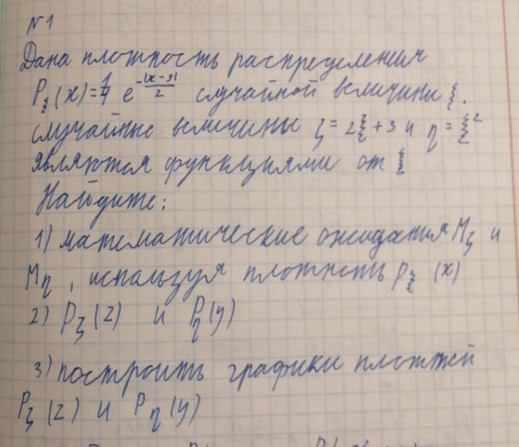 №1
Дана плотность распределения
P_ξ(x)=1/4 e^{-|x-3|/2} случайной величины ξ.
случайные величины ζ=2ξ+3 и η=ξ²
являются функциями от ξ
Найдите:
1) математические ожидания Mζ и
Mη, используя плотность P_ξ(x)
2) P_ζ(z) и P_η(y)
3) построить графики плотней
P_ζ(z) и P_η(y)